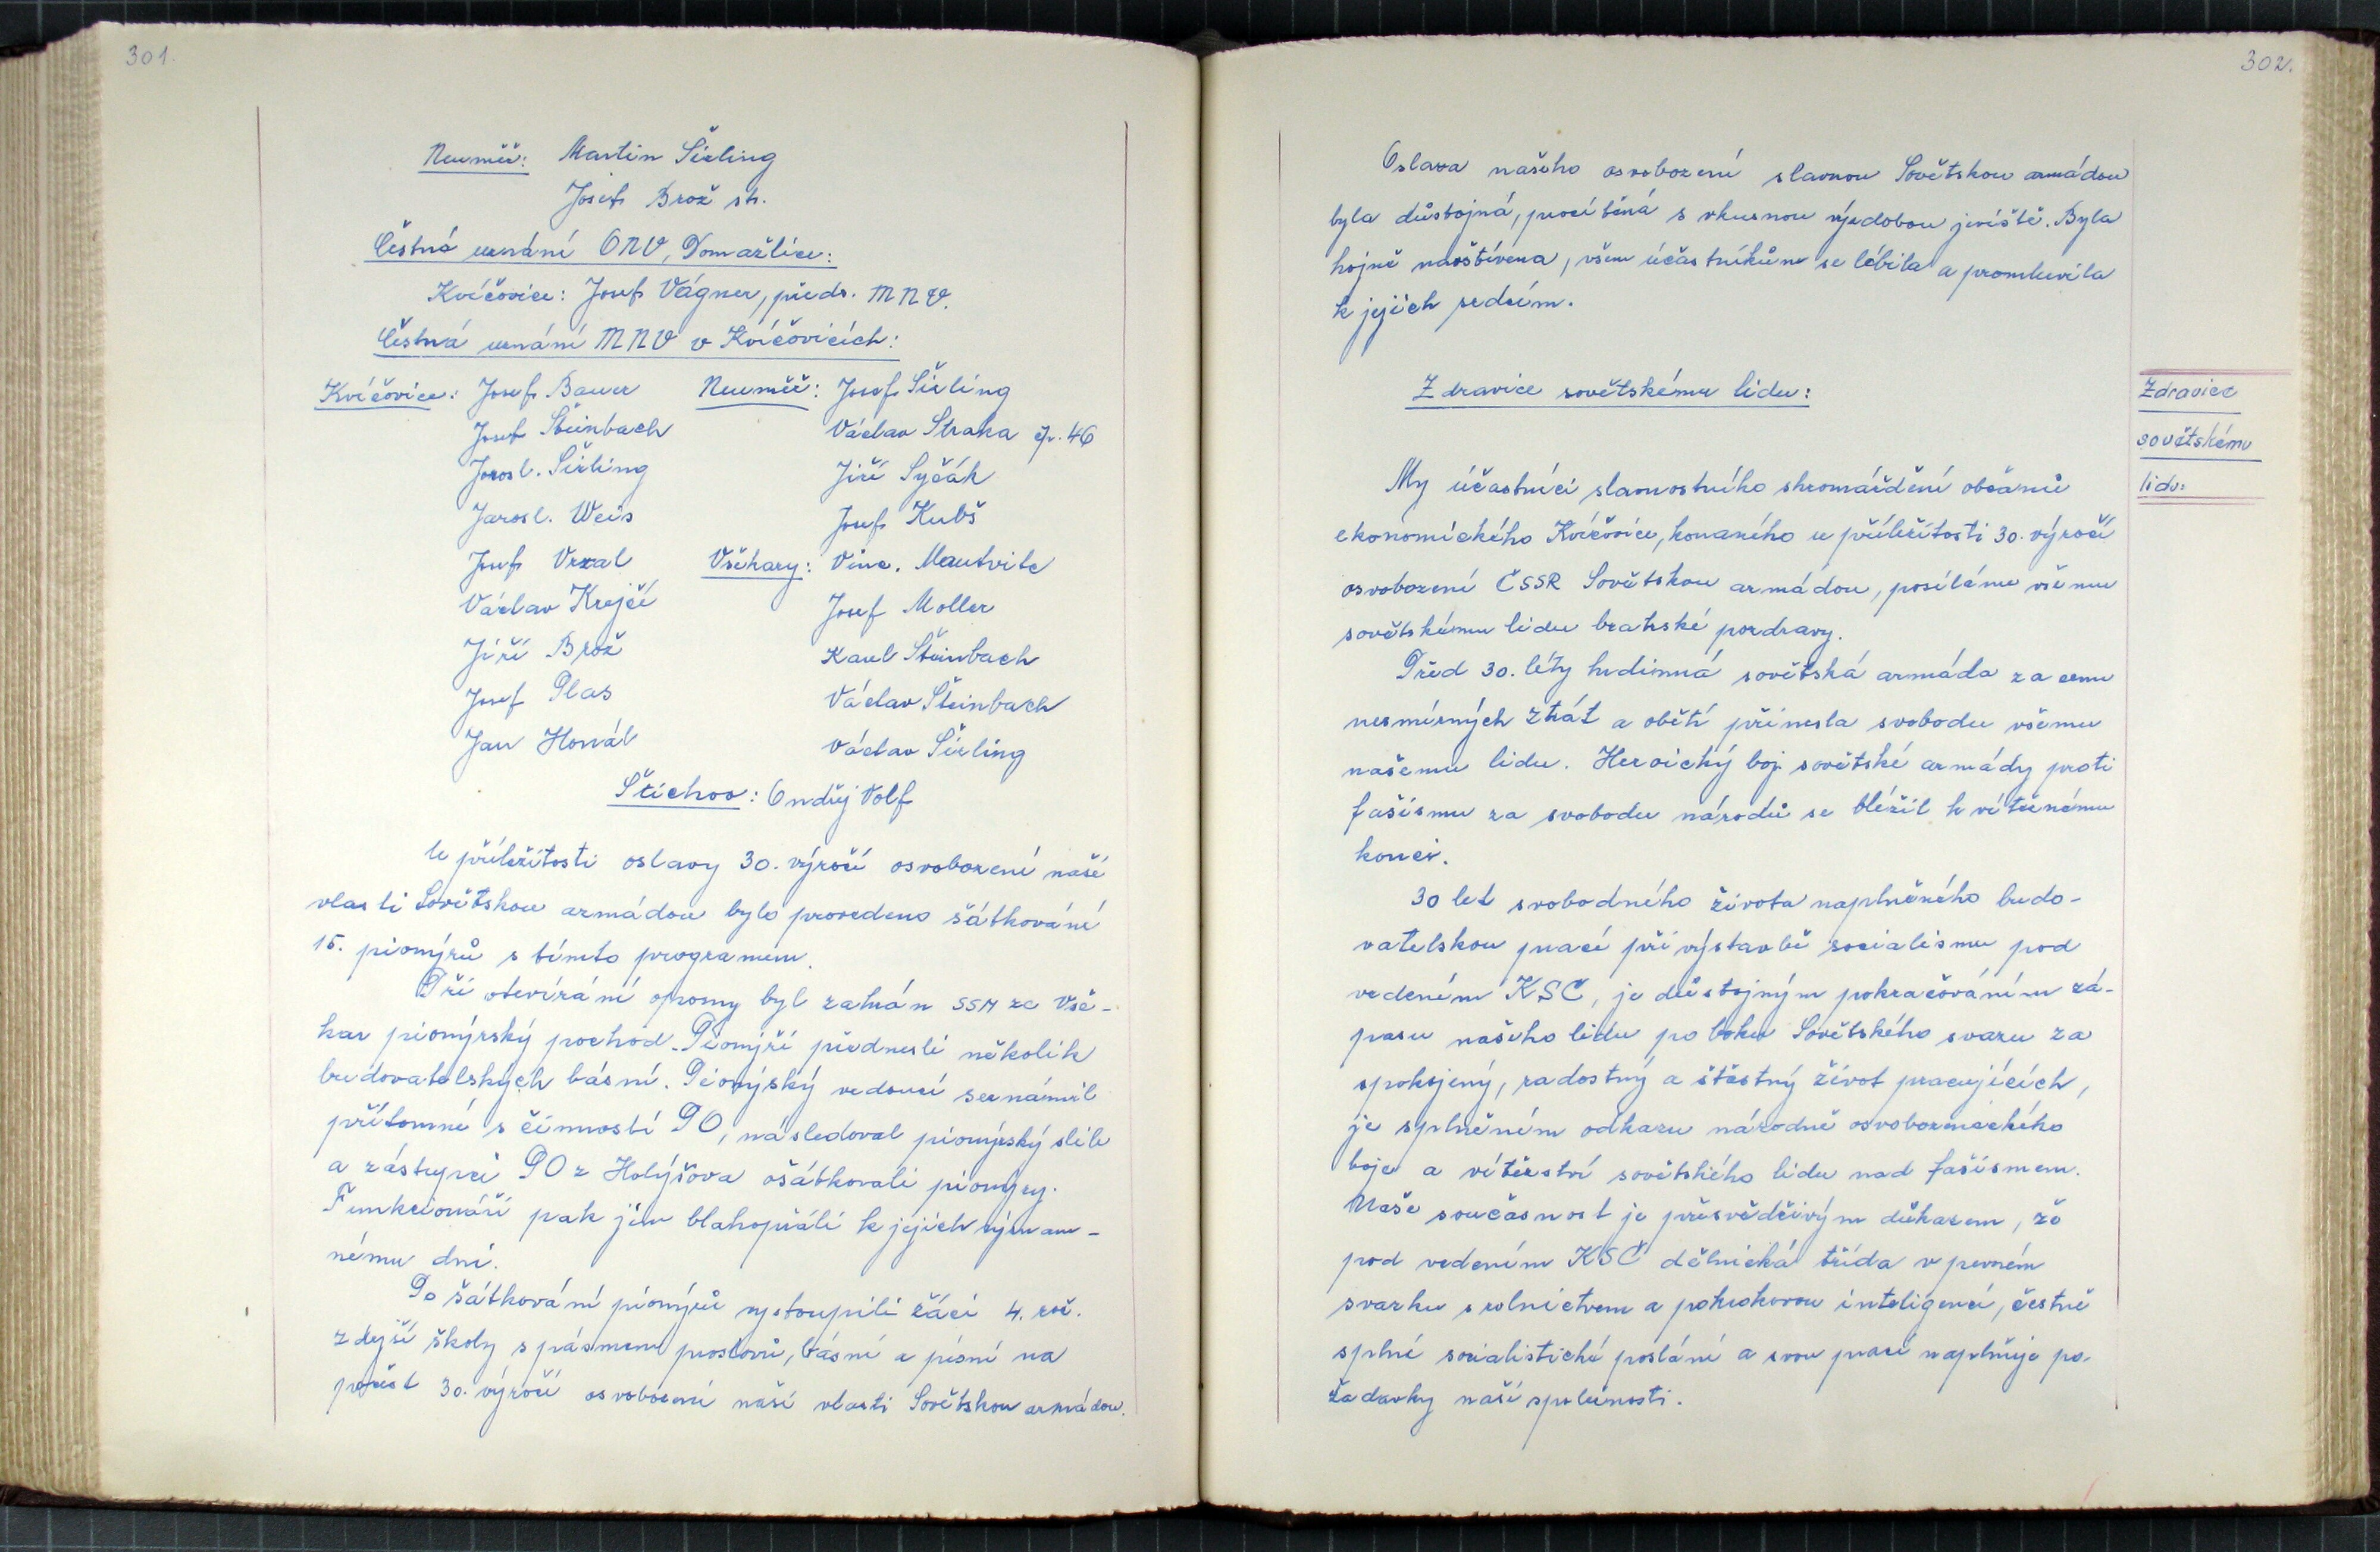 301.
Neuměř: Martin Širling
Josef Brož st.
Čestná uznání ONV, Domažlice:
Kvíčovice: Josef Vágner, předs. MNV.
Čestná uznání MNV v Kvíčovicích:
Kvíčovice: Josef Bauer Neuměř: Josef Širling
Josef Šteinbach Václav Straka čp. 46
Jarosl. Širling Jiří Syčák
Jarosl. Weis Josef Kubš
Josef Vrzal Všekary: Vinc. Mautvite
Václav Krejčí Josef Moller
Jiří Brož Karel Šteinbach
Josef Plas Václav Šteinbach
Jan Honál Václav Širling
Štichov: Ondřej Volf
U příležitosti oslavy 30. výročí osvobození naší
vlasti Sovětskou armádou bylo provedeno šátkování
15. pionýrů s tímto programem.
Při otevírání opony byl zahrán SSM ze Vše-
kar pionýrský pochod. Pionýři přednesli několik
budovatelských básní. Pionýský vedoucí seznámil
přítomné s činností PO, následoval pionýrský slib
a zástupci PO z Holýšova ošátkovali pionýry.
Funkcionáři pak jim blahopřáli k jejich význam-
nému dni.
Po šátkování pionýrů vystoupili žáci 4. roč.
zdejší školy s pásmem proslovů, básní a písní na
počest 30. výročí osvobození naší vlasti Sovětskou armádou.
302.
Oslava našeho osvobození slavnou Sovětskou armádou
byla důstojná, procítěná s vkusnou výzdobou jeviště. Byla
hojně navštívena, všem účastníkům se líbila a promluvila
k jejich srdcím.
Zdravice sovětskému lidu:
Zdravice
sovětskému
lidu:
My účastníci slavnostního shromáždění občanů
ekonomického Kvíčovice, konaného u příležitosti 30. výročí
osvobození ČSSR Sovětskou armádou, posíláme všemu
sovětskému lidu bratrské pozdravy.
Před 30. léty hrdinná sovětská armáda za cenu
nesmírných ztrát a obětí přinesla svobodu všemu
našemu lidu. Heroický boj sovětské armády proti
fašismu za svobodu národů se blížil k vítěznému
konci.
30 let svobodného života naplněného budo-
vatelskou prací při výstavbě socialismu pod
vedením KSČ, je důstojným pokračováním zá-
pasu našeho lidu po boku Sovětského svazu za
spokojený, radostný a šťastný život pracujících,
je splněním odkazu národně osvobozeneckého
boje a vítězství sovětského lidu nad fašismem.
Naše současnost je přesvědčivým důkazem, že
pod vedením KSČ dělnická třída v pevném
svazku s rolnictvem a pokrokovou inteligencí, čestně
splní socialistické poslání a svou prací naplňuje po-
žadavky naší společnosti.